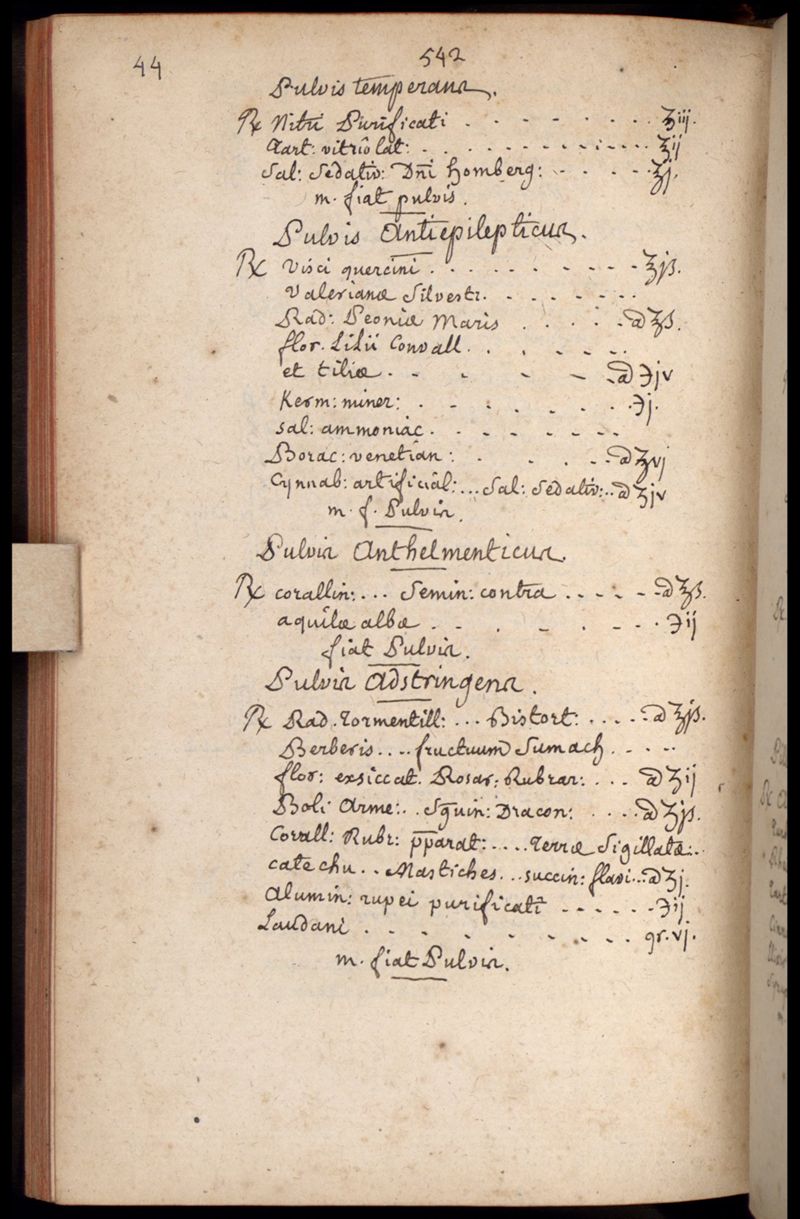 44
542
Pulvis temperans.
℞ Nitri Purificati . - - - - . . . . ʒiij.
Tart: vitriolat: . - . . - - - - - . - . . ʒij
Sal: Sedativ: Dni Homberg: - - - . ʒj.
m. fiat pulvis.
Pulvis Antiepilepticus.
℞ Visci quercini . . . . - . - - - - ʒjß.
Valerianæ Silvestr. - . - - - - . .
Rad: Peoniæ Maris . . . . . ā ʒß.
flor. Lilii Convall . . . - - - . .
et tiliæ . - - - - - ā ℈jv
Kerm: miner: . - - . - - . . ℈j.
sal: ammoniac . - - - - - - -
Borac: venetian: . - . - . - ā ʒvj
Cynnab: artificial: ... Sal: Sedativ: . . ā ʒjv
m. f. Pulvis.
Pulvis Anthelmenticus.
℞ corallin: ... Semin: contra . . - - - ā ʒß.
aquilæ albæ . - - . - . - - . ℈ij
fiat Pulvis.
Pulvis Adstringens.
℞ Rad. Tormentill: ... Bistort: . . . . ā ʒjß.
Berberis .... fructuum Sumach . - - -
flor: exsiccat. Rosar: Rubrar: . . . ā ʒij
Boli Arme: . . Sguin: Dracon: . . . . ā ʒjß.
Corall: Rubr: pparat: .... Terræ Sigillatæ . .
catechu . . Mastiches ... succin: flavi . . ā ʒj.
Alumin: rupei purificati - - - - - - ℈ij
Laudani . - - - - - - . . gr. vj.
m. fiat Pulvis.